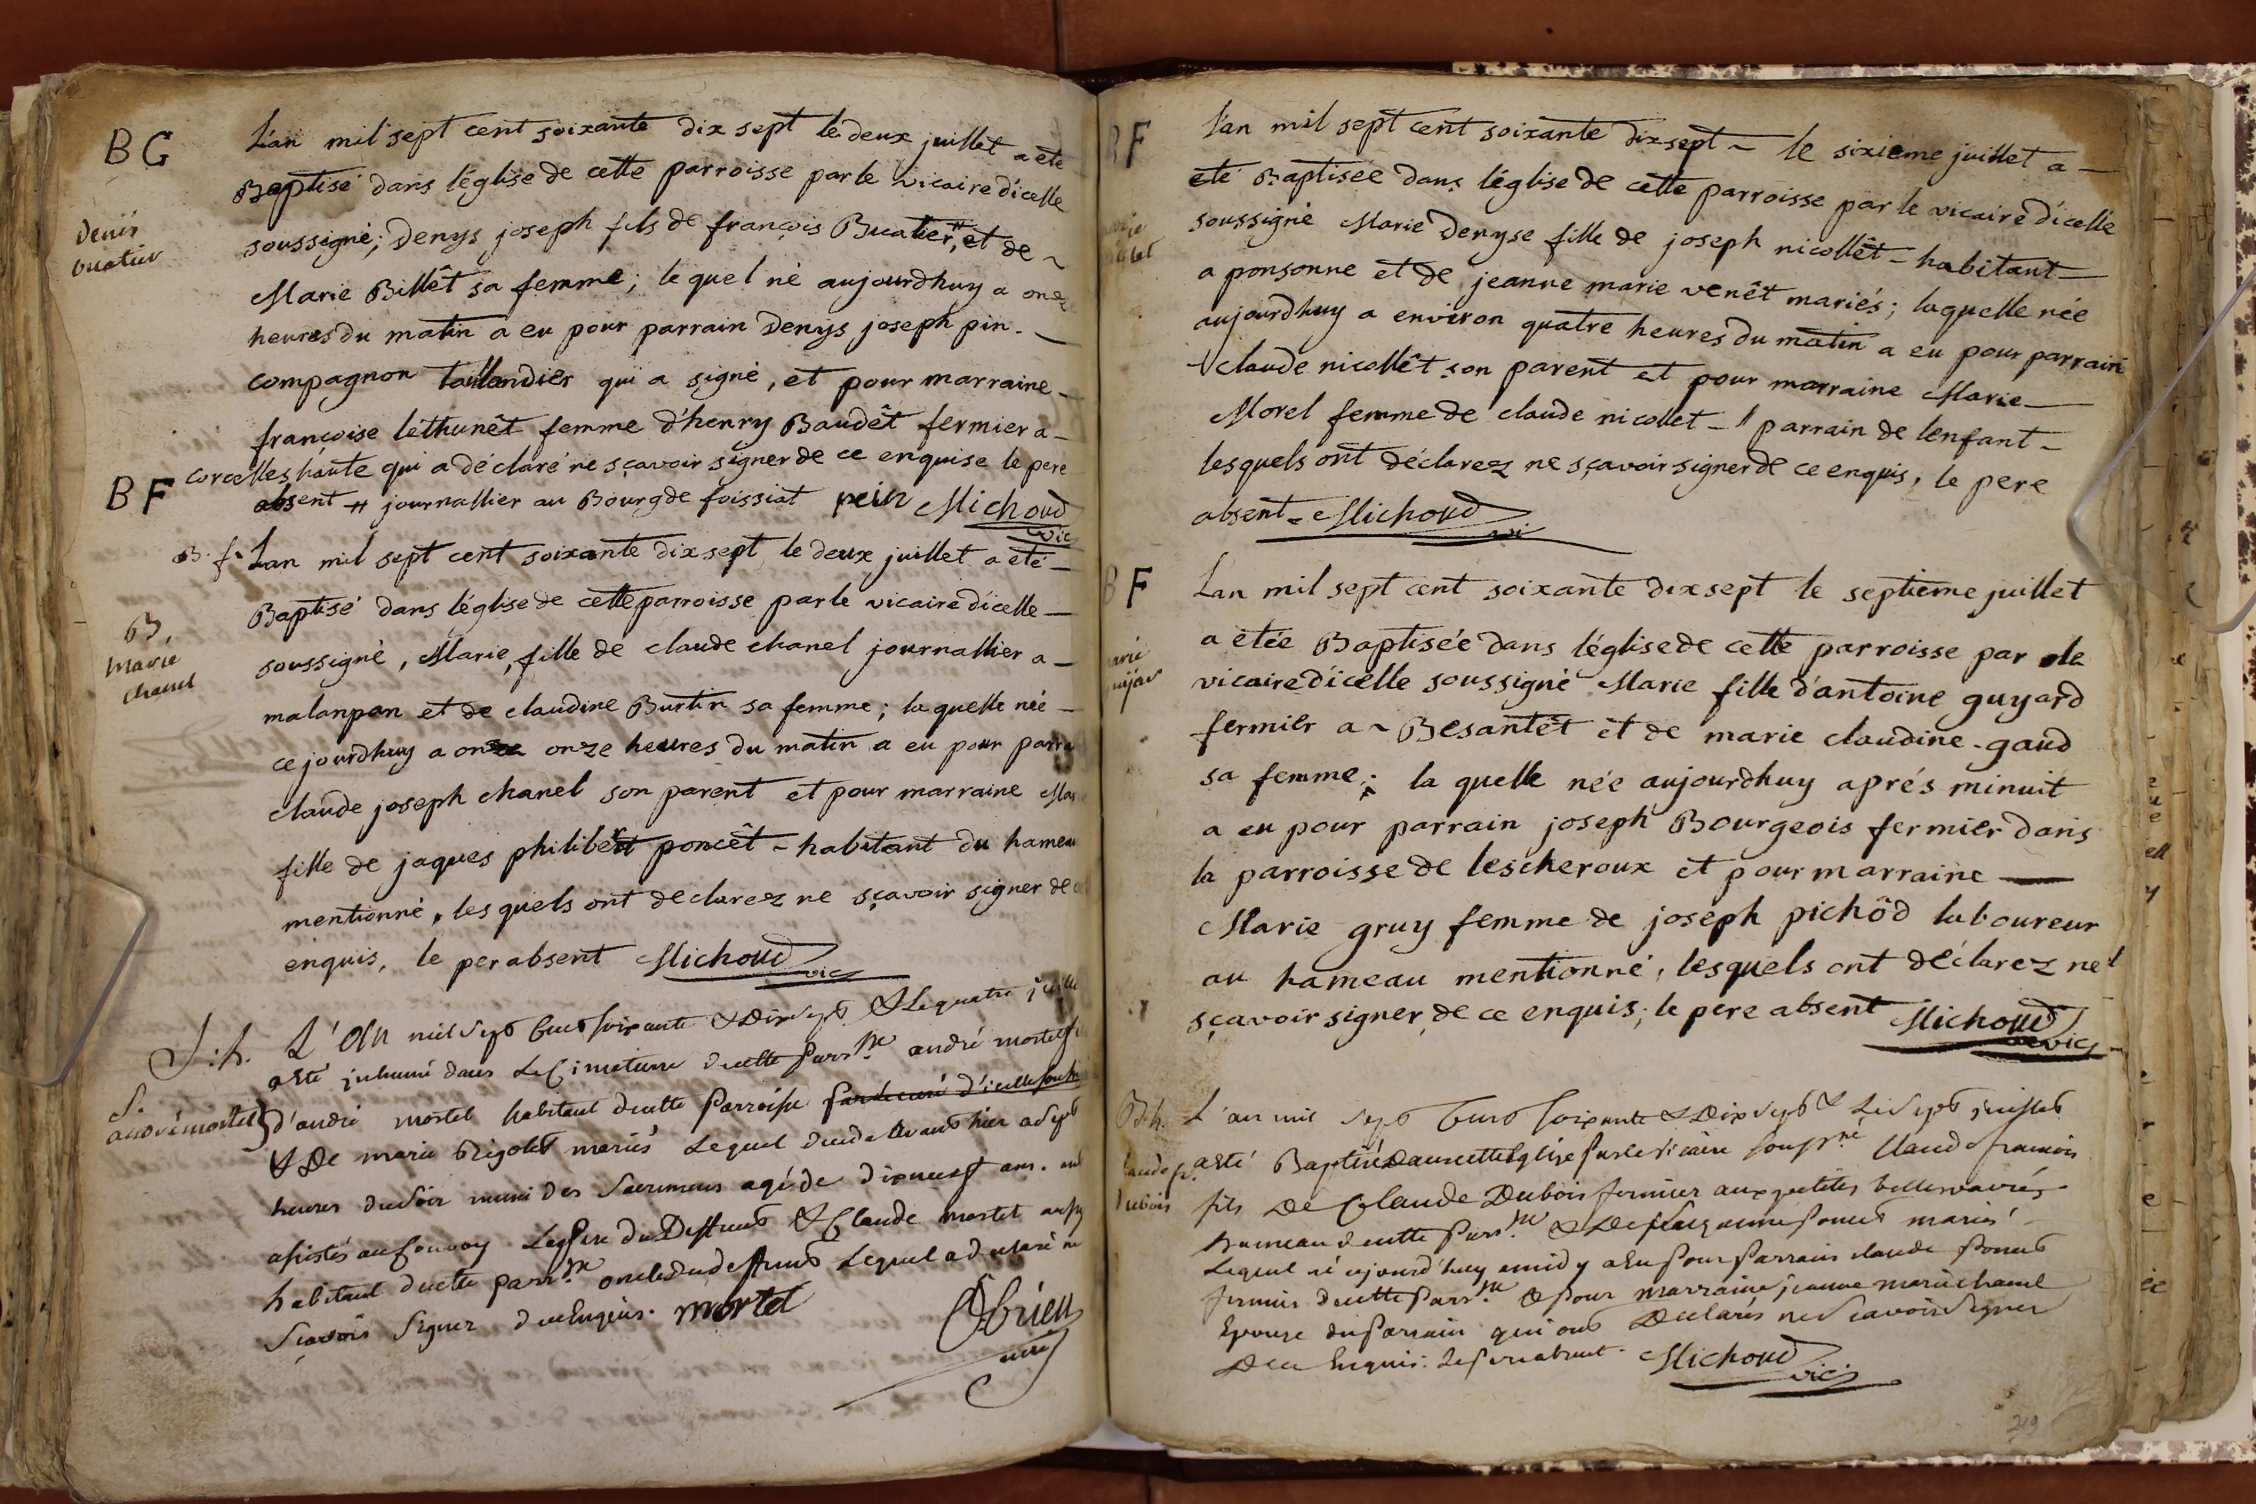 BG
Denis
buatier
L'an mil sept cent soixante dix sept le deux juillet a eté
Baptisé dans l'église de cette parroisse par le vicaire d'icelle
soussigné; Denys joseph fils de françois Buatier,# et de ~
Marie Billêt sa femme; le quel né aujourdhuy a onze
heures du matin a eu pour parrain Denys joseph pin
compagnon taillandier qui a signé, et pour marraine
françoise lethunêt femme d'henry Baudêt fermier a
corcelles haute qui a déclaré ne sçavoir signer de ce enquise le pere
absent # journallier au Bourg de foissiat pein Michoud
vic
BF
B. f.
B.
marie
chanel
Lan mil sept cent soixante dix sept le deux juillet a eté
Baptisé dans l'église de cette parroisse par le vicaire d'icelle
soussigné, Marie, fille de claude chanel journallier a
malanpan et de claudine Burtin sa femme; la quelle née
ce jourdhuy a onze onze heures du matin a eu pour parra
claude joseph chanel son parent et pour marraine Mar
fille de jaques philibert poncêt - habitant du hameau
mentionné, les quels ont declarez ne sçavoir signer de ce
enquis, le per absent Michoud
vic
S. h.
S.
andré mortel
L'an mil sept cent soixante & dix sept & le quatre juillet
a Eté inhumé dans le Cimeterre de cette parr.sse andré mortel fi
d'andré mortel habitant de cette parroisse par le curé d'icelle
& De marie Rigolet mariés Lequel décédé avant hier a sept
heures du soir muni des sacremens agé de dixneuf ans. ont
assistés au Convoy Le pere du Deffunt & Claude mortel aussy
habitant de cette parr.sse oncle du deffunt Lequel a declaré ne
sçavoir signer de ce Enquis. mortel
Obrien
curé
BF
L'an mil sept cent soixante dix sept ~ le sixieme juillet a
eté Baptisée dans l'église de cette parroisse par le vicaire d'icelle
soussigné Marie Denyse fille de joseph nicollêt - habitant
a ponsonne et de jeanne marie venêt mariés; laquelle née
aujourdhuy a environ quatre heures du matin a eu pour parrain
claude nicollêt son parent et pour marraine Marie
Morel femme de claude nicollet - " parrain de lenfant
lesquels ont déclarez ne sçavoir signer de ce enquis, le pere
absent. Michoud
vic
BF
Lan mil sept cent soixante dix sept le septieme juillet
a etée Baptisée dans l'église de cette parroisse par le
vicaire d'icelle soussigné Marie fille d'antoine guyard
fermier a ~ Besantêt et de marie claudine gaud
sa femme; la quelle née aujourdhuy aprés minuit
a eu pour parrain joseph Bourgeois fermier dans
la parroisse de lescheroux et pour marraine
Marie gruy femme de joseph pichôd laboureur
au hameau mentionné, lesquels ont déclarez ne
sçavoir signer de ce enquis; le pere absent Michoud
vic
B. h.
Dubois
L'an mil sept Cent soixante & Dix sept & Le sept juillet
a Eté Baptisé dans cette Eglise par le vicaire souss.né Claude françois
fils De Claude Dubois fermier aux petites
hameau de cette parr.sse & De poncet mariés
Lequel né aujourd'huy a midy a Eu pour parrain claude poncet
fermier de cette parr.sse & pour marraine jeanne marie chanel
Epouse du parrain qui ont Declarés ne scavoir signer
De ce Enquis. Le pere absent. Michoud
vic